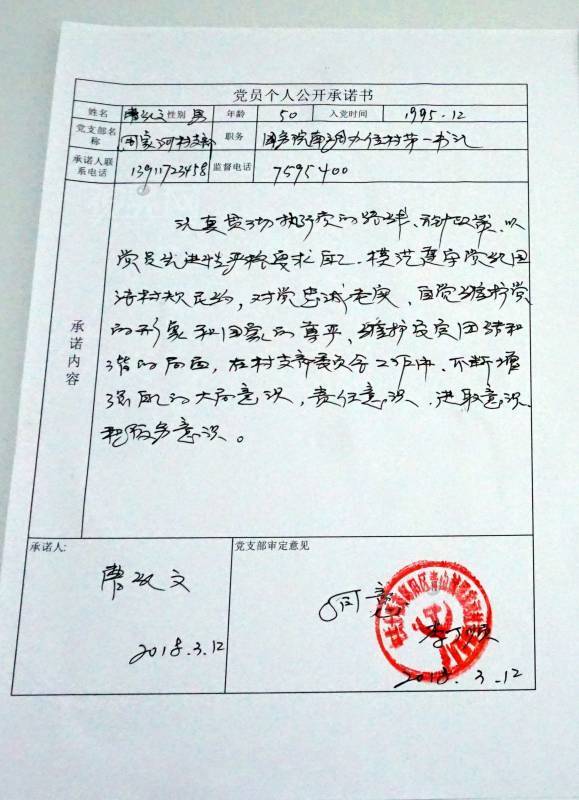 党员个人公开承诺书
姓名 曹政文 性别 男 年龄 50 入党时间 1995.12
党支部名称 国家河村支部 职务 国务院南调办住村第一书记
承诺人联系电话 13911723458 监督电话 7595400
承诺内容
认真贯彻执行党的路线、方针政策、以
党员先进性严格要求自己、模范遵守党纪国
法村规民约，对党忠诚老实、自觉维护党
的形象和国家的尊严、维护安定团结和
谐的局面，在村支部委员会工作中、不断增
强自己的大局意识，责任意识、进取意识
和服务意识。
承诺人:
曹政文
2018.3.12
党支部审定意见
同意
2018.3.12